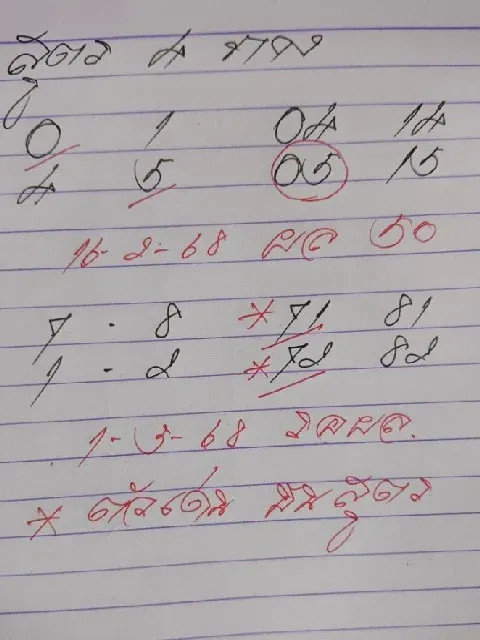 สูตร 4 ราง
0 1 04 14
4 5 05 15
16-2-68 ผล 50
7 - 8 *71 81
1 - 2 *72 82
1-3-68 รอผล.
* ตัวเด่น บนสูตร